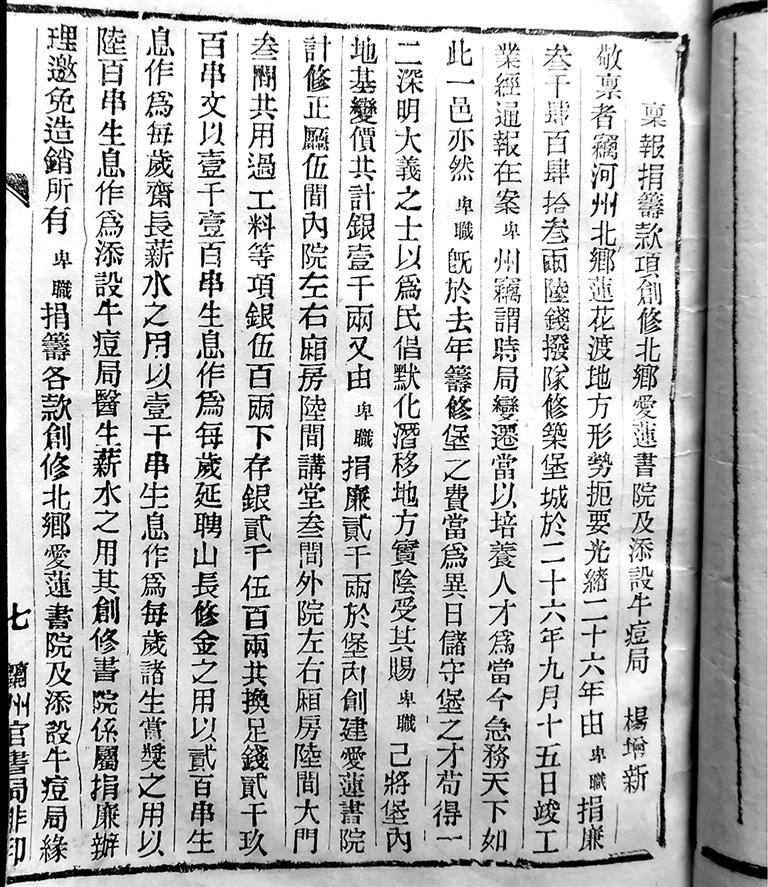 稟報捐籌款項創修北鄉愛蓮書院及添設牛痘局 楊增新
敬稟者竊河州北鄉蓮花渡地方形勢扼要光緒二十六年由卑職捐廉
叁千肆百肆拾叁兩陸錢撥隊修築堡城於二十六年九月十五日竣工
業經通報在案卑州竊謂時局變遷當以培養人才為當今急務天下如
此一邑亦然卑職既於去年籌修堡之費當為異日儲守堡之才苟得一
二深明大義之士以為民倡默化潛移地方實陰受其賜卑職己將堡內
地基變價共計銀壹千兩又由卑職捐廉貳千兩於堡內創建愛蓮書院
計修正廳伍間內院左右廂房陸間講堂叁間外院左右厢房陸間大門
叁間共用過工料等項銀伍百兩下存銀貳千伍百兩共換足錢貳千玖
百串文以壹千壹百串生息作為每歲延聘山長修金之用以貳百串生
息作為每歲齋長薪水之用以壹千串生息作為每歲諸生當獎之用以
陸百串生息作為添設牛痘局醫生薪水之用其創修書院係屬捐廉辦
理邀免造銷所有卑職捐籌各款創修北鄉愛蓮書院及添設牛痘局緣
七 蘭州官書局排印